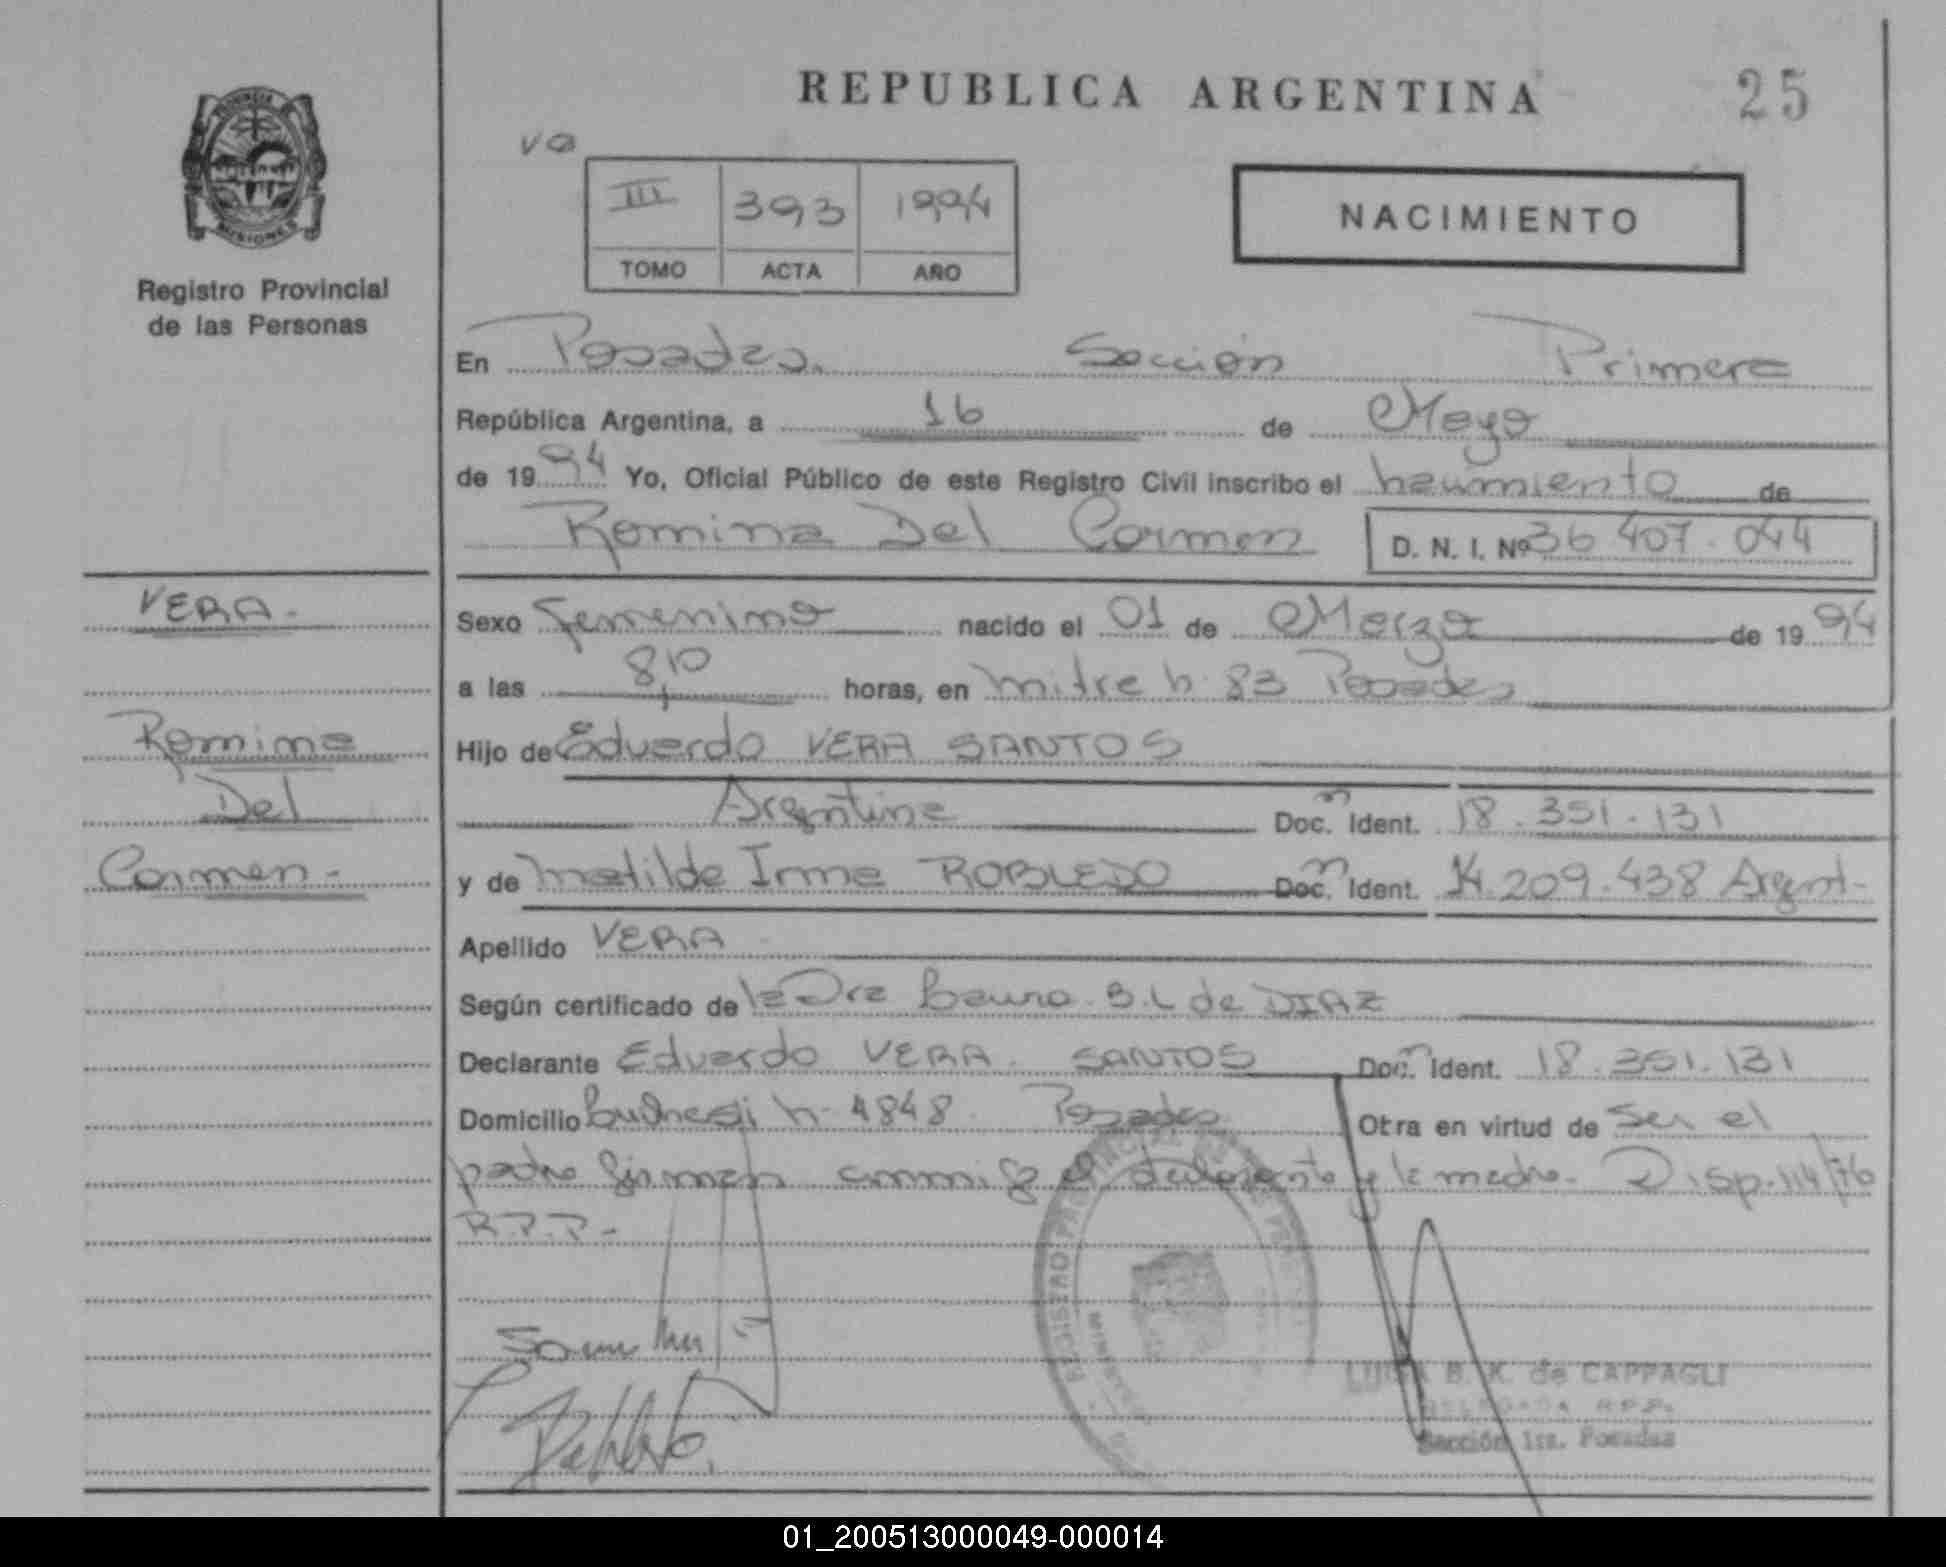 REPUBLICA ARGENTINA
25
PROVINCIA
MISIONES
Registro Provincial
de las Personas
III 393 1994
TOMO ACTA AÑO
NACIMIENTO
En Posadas. Sección Primera
República Argentina, a 16 de Mayo
de 1994 Yo, Oficial Público de este Registro Civil inscribo el nacimiento de
Romina Del Carmen D. N. I. Nº 36 407.044
VERA.-
Sexo Femenino nacido el 01 de Marzo de 1994
a las 8,10 horas, en Mitre n. 83 Posadas
Romina
Hijo de Eduardo VERA SANTOS
Del
Argentina Doc. Ident. 18.351.131
Carmen.-
y de Matilde Irma ROBLEDO Doc. Ident. 14.209.438 Argent.-
Apellido VERA
Según certificado de la Dra Laura B.L de DIAZ
Declarante Eduardo VERA SANTOS Doc. Ident. 18.351.131
Domicilio n. 4848 Posadas Otra en virtud de ser el
padre firman conmigo el declarante y la madre. Disp.114/76
R.P.P.-
B. K. de CAPPAGLI
DELEGADA R.P.P.
Sección 1ra. Posadas
01_200513000049-000014